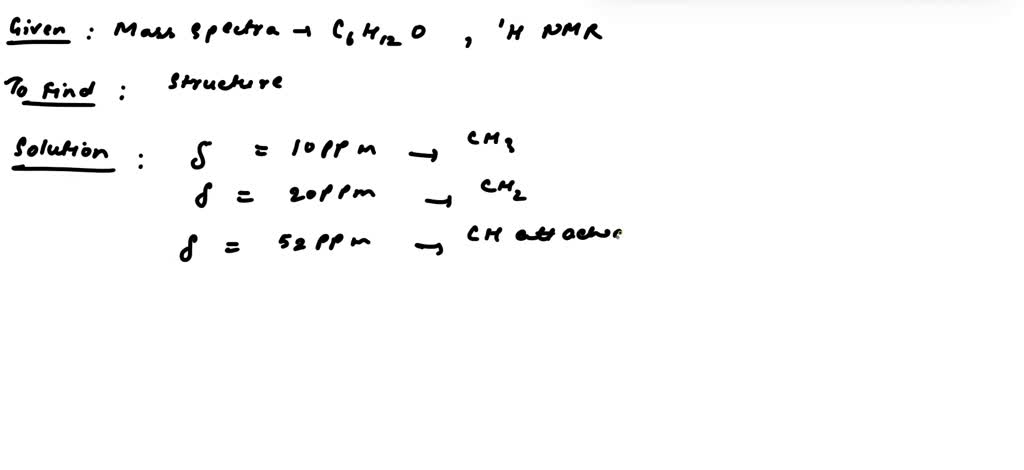 Given : Mass spectra → C6H12O , 'H NMR
To Find : Structure
Solution : δ = 10 ppm → CH3
δ = 20 ppm → CH2
δ = 52 ppm → CH attache